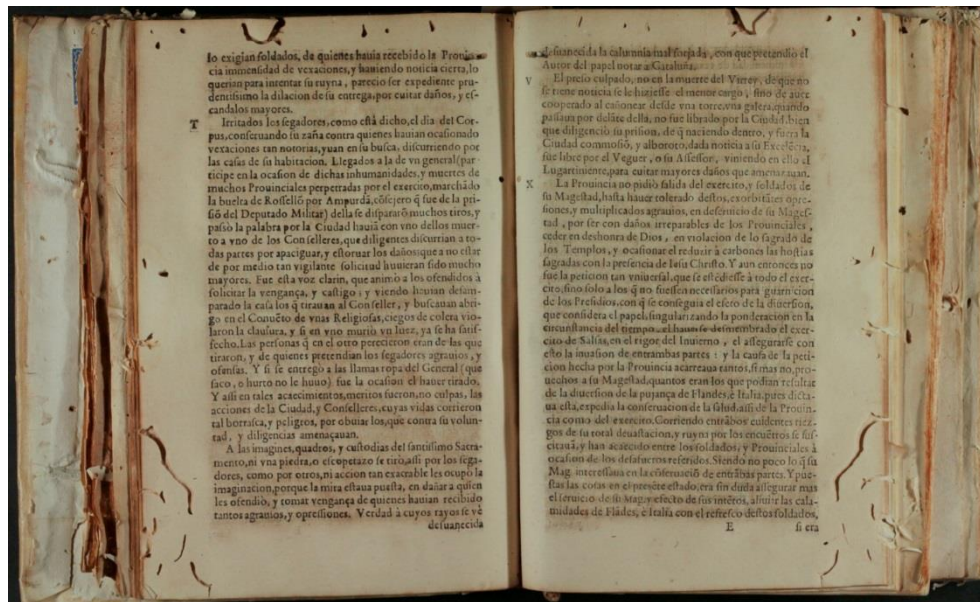 lo exigian soldados, de quienes hauia recebido la Prouin
cia immensidad de vexaciones, y hauiendo noticia cierta, lo
querian para intentar su ruyna, parecio ser expediente pru-
dentissimo la dilacion de su entrega, por euitar daños, y es-
candalos mayores.
T Irritados los segadores, como està dicho, el dia del Cor-
pus, conseruando su zaña contra quienes hauian ocasionado
vexaciones tan notorias, yuan en su busca, discurriendo por
las casas de su habitacion. Llegados a la de vn general (par
ticipe en la ocasion de dichas inhumanidades, y muertes de
muchos Prouinciales perpetradas por el exercito, marchãdo
la buelta de Rossellò por Ampurdã, cõsejero q̃ fue de la pri-
siõ del Deputado Militar) della se dispararõ muchos tiros, y
passò la palabra por la Ciudad hauiã con vno dellos muer-
to a vno de los Conselleres, que diligentes discurrian a to-
das partes por apaciguar, y estoruar los daños: que a no estar
de por medio tan vigilante solicitud huuieran sido mucho
mayores. Fue esta voz clarin, que animò a los ofendidos à
solicitar la vengança, y castigo; y viendo hauian desam-
parado la casa los q̃ tirauan al Conseller, y buscauan abri-
go en el Conuẽto de vnas Religiosas, ciegos de colera vio-
laron la clausura, y si en vno murio vn Iuez, ya se ha satis-
fecho. Las personas q̃ en el otro perecieron eran de las que
tiraron, y de quienes pretendian los segadores agrauios, y
ofensas. Y si se entregò a las llamas ropa del General (que
saco, o hurto no le huuo) fue la ocasion el hauer tirado.
Y assi en tales acaecimientos, meritos fueron, no culpas, las
acciones de la Ciudad, y Conselleres, cuyas vidas corrieron
tal borrasca, y peligros, por obuiar los, que contra su volun-
tad, y diligencias amenaçauan.
A las imagines, quadros, y custodias del santissimo Sacra-
mento, ni vna piedra, o escopetazo se tirò, assi por los sega-
dores, como por otros, ni accion tan exacrable les ocupò la
imaginacion, porque la mira estaua puesta, en dañar a quien
les ofendio, y tomar vengança de quienes hauian recibido
tantos agrauios, y opressiones. Verdad à cuyos rayos se vè
desuanecida
desuanecida la calumnia mal forjada, con que pretendio el
Autor del papel notar a Cataluña.
V El preso culpado, no en la muerte del Virrey, de que no
se tiene noticia se le hiziesse el menor cargo, sino de auer
cooperado al cañonear desde vna torre, vna galera, quando
passaua por delãte della, no fue librado por la Ciudad, bien
que diligenciò su prision, de q̃ naciendo dentro, y fuera la
Ciudad commosiõ, y alboroto, dada noticia a su Excelẽcia,
fue libre por el Veguer, o su Assessor, viniendo en ello el
Lugartiniente, para euitar mayores daños que amenazauan.
X La Prouincia no pidiò salida del exercito, y soldados de
su Magestad, hasta hauer tolerado destos, exorbitãtes opre-
siones, y multiplicados agrauios, en deseruicio de su Mages-
tad, por ser con daños irreparables de los Prouinciales,
ceder en deshonra de Dios, en violacion de lo sagrado de
los Templos, y ocasionar el reduzir à carbones las hostias
sagradas con la presencia de Iesu Christo. Y aun entonces no
fue la peticion tan vniuersal, que se estẽdiesse à todo el exer-
cito, sino solo a los q̃ no fuessen necessarios para guarnicion
de los Presidios, con q̃ se conseguia el efeto de la diuersion,
que considera el papel, singularizando la ponderacion en la
circunstancia del tiempo, el hauerse desmembrado el exer-
cito de Salsas, en el rigor del Inuierno, el assegurarse con
esto la inuasion de entrambas partes; y la causa de la peti-
cion hecha por la Prouincia acarreaua tantos, si mas no, pro-
uechos a su Magestad, quantos eran los que podian resultar
de la diuersion de la pujança de Flandes, è Italia, pues dicta-
ua esta, expedia la conseruacion de la salud, assi de la Prouin-
cia como del exercito. Corriendo entrãbos euidentes ries-
gos de su total deuastacion, y ruyna por los encuẽtros se sus-
citauã, y han acaecido entre los soldados, y Prouinciales à
ocasion de los desafueros referidos. Siendo no poco lo q̃ su
Mag. interessaua en la cõseruaciõ de entrãbas partes. Y pue-
stas las cosas en el presẽte estado, era sin duda assegurar mas
el seruicio de su Mag. y efecto de sus intẽtos, aliuiar las cala-
midades de Flãdes, e Italia con el refresco destos soldados,
E si era